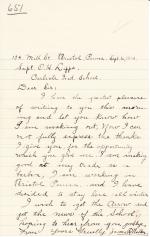 651
154 Mill St. Bristol Penna. Sept 6, 1914.
Supt. O.H. Lipps
Carlisle Ind. School.
Dear Sir:
I have the greatest pleasure
of writing to you this mor-
ning and let you know how
I am making out. Now I can
not fully express the thanks
I give you, for the opportunity
which you give me. I am making
good at my trade as a
here in
Bristol Penna, and I have
decided to stay here all winter
I wish to get the Arrow and
get the news of the School,
hoping to hear from you,
from Yours Truly